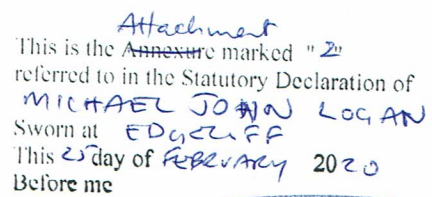 Attachment
This is the Annexure marked "2"
referred to in the Statutory Declaration of
MICHAEL JOHN LOGAN
Sworn at EDGECLIFF
This 25 day of FEBRUARY 2020
Before me